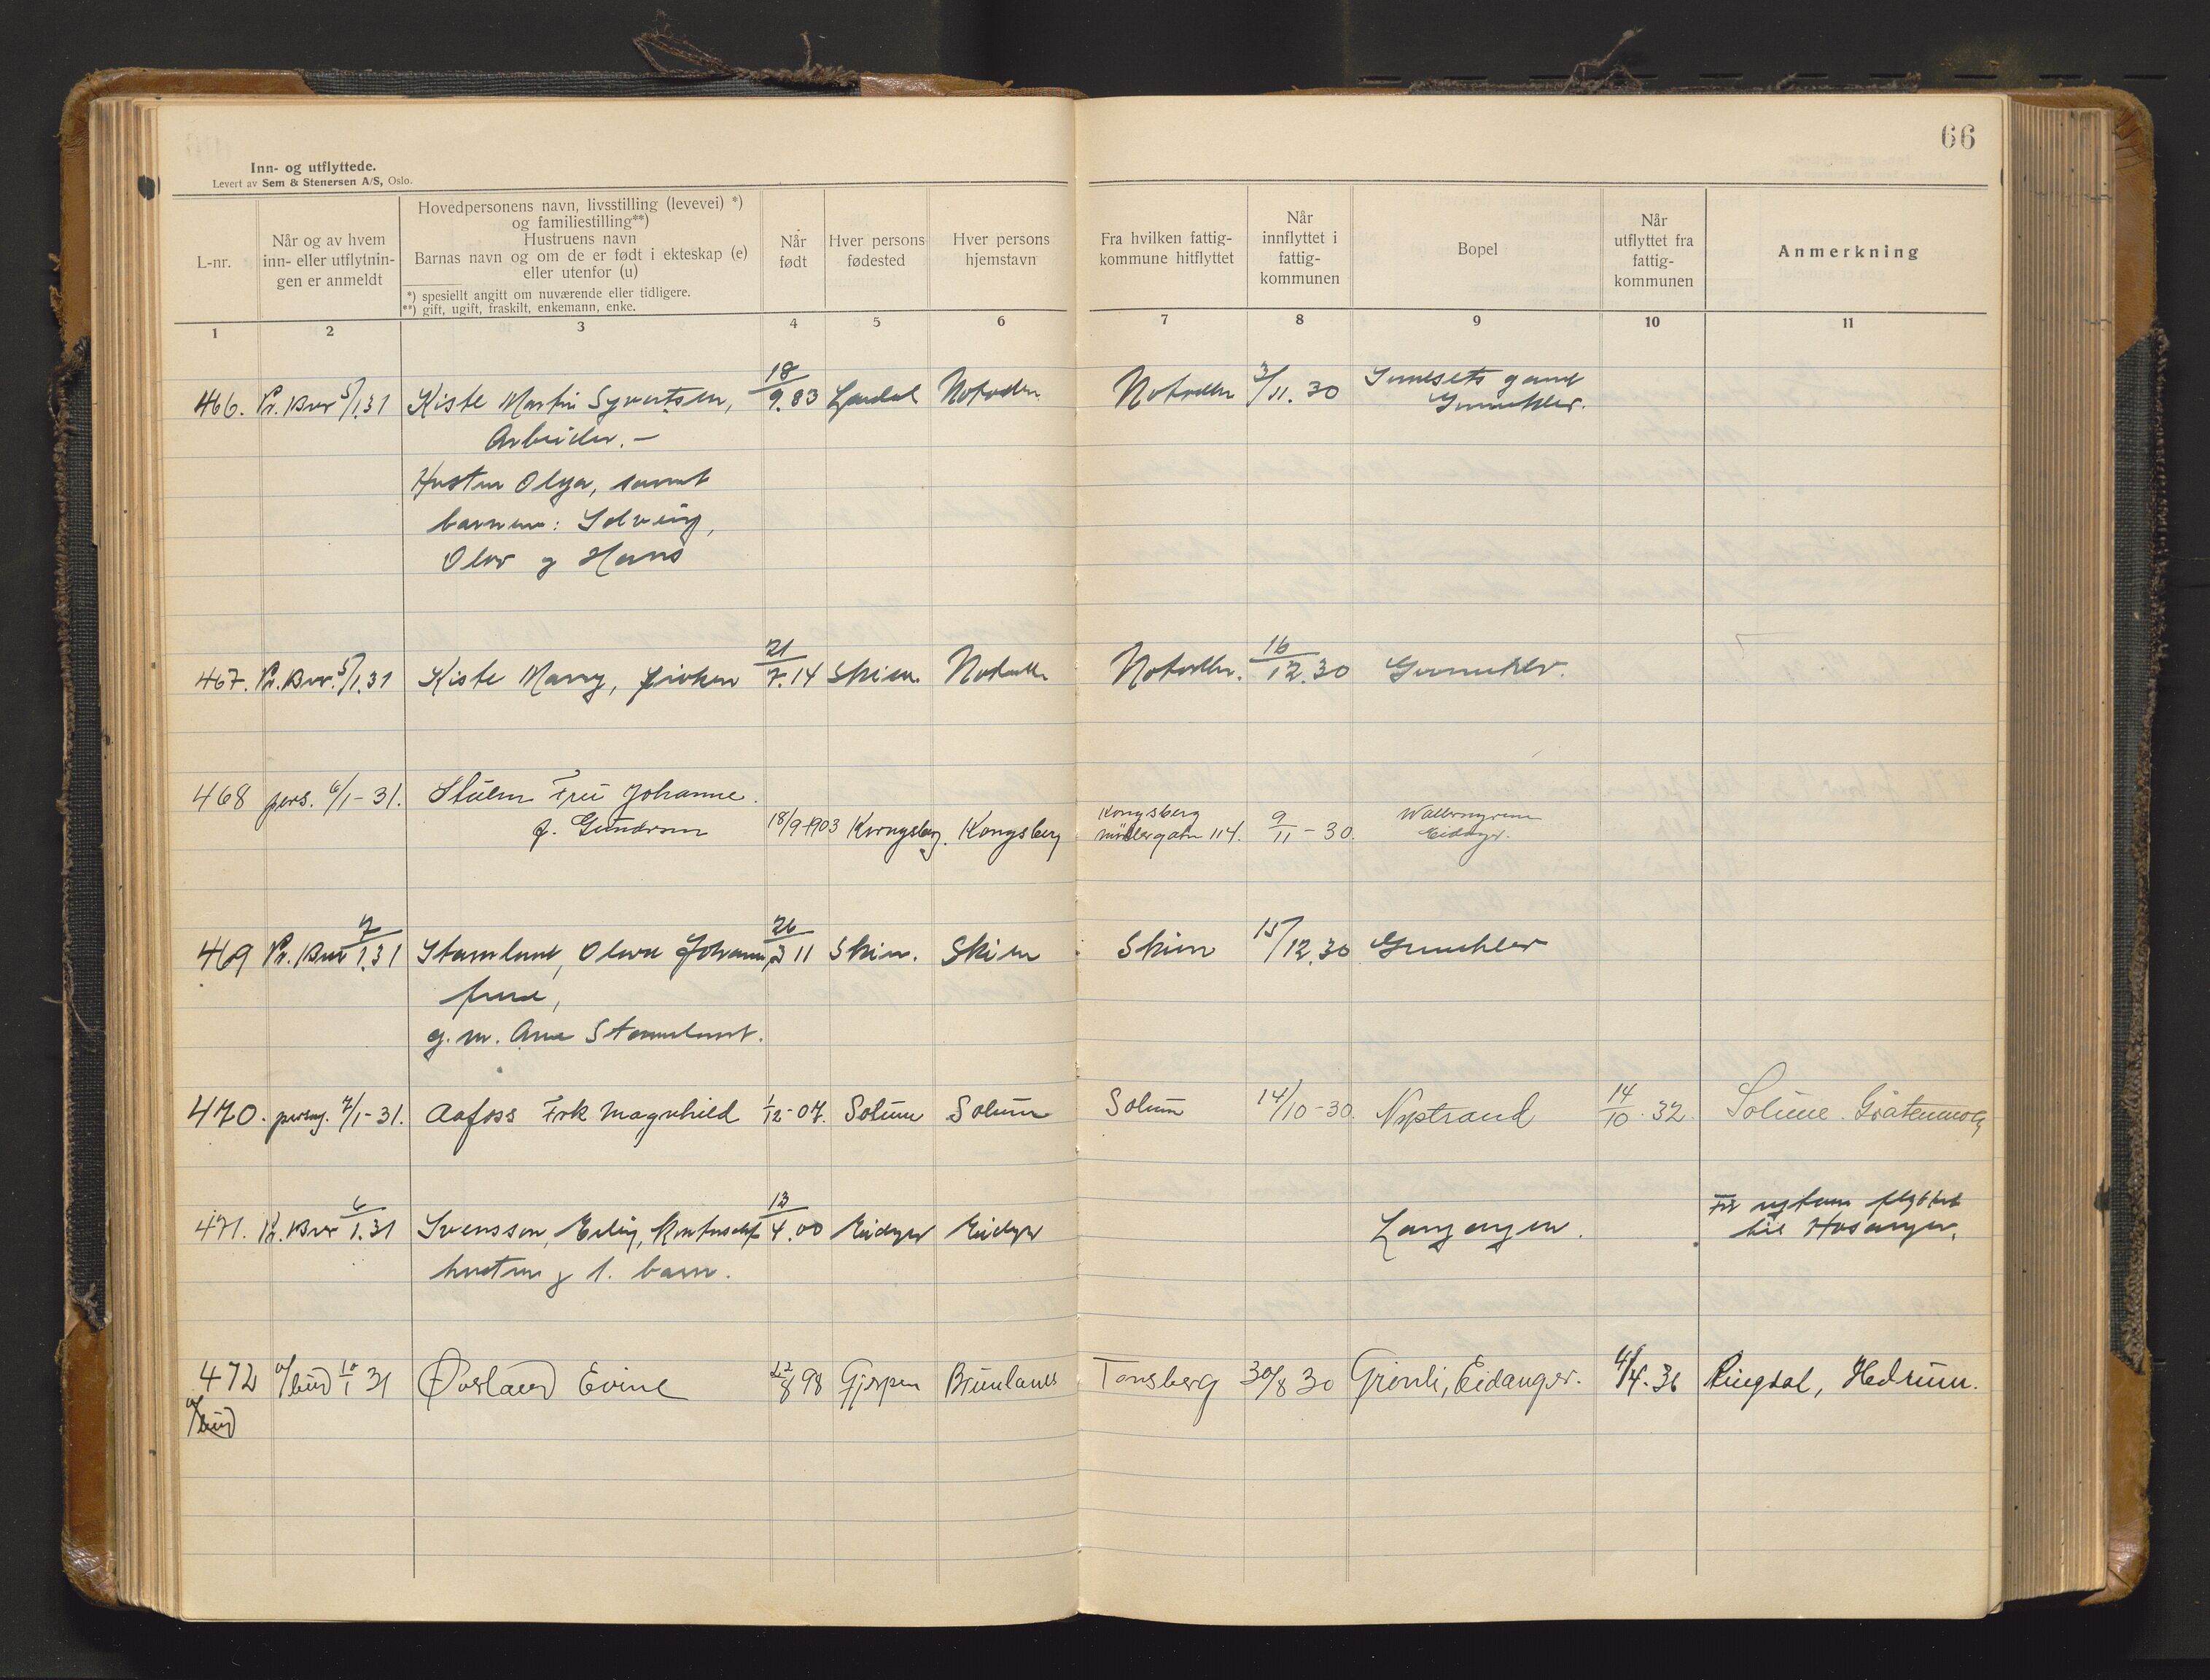 66
Inn- og utflyttede.
Levert av Sem & Stenersen A/S, Oslo.
L-nr.
Når og av hvem
inn- eller utflytnin-
gen er anmeldt
Hovedpersonens navn, livsstilling (levevei) *)
og familiestilling**)
Hustruens navn
Barnas navn og om de er født i ekteskap (e)
eller utenfor (u)
*) spesiellt angitt om nuværende eller tidligere.
**) gift, ugift, fraskilt, enkemann, enke.
Når
født
Hver persons
fødested
Hver persons
hjemstavn
Fra hvilken fattig-
kommune hitflyttet
Når
innflyttet i
fattig-
kommunen
Bopel
Når
utflyttet fra
fattig-
kommunen
Anmerkning
1 2 3 4 5 6 7 8 9 10 11
466. Pr. Brev 5/1.31 Kiste Martin Syvertsen, 18/9.83 Notodden Notodden 3/11.30
Arbeider. –
Hustru Olga, samt
barnene: Solveig,
Olav og Hans
467. Pr. Brev. 5/1.31 Kiste Mary, 21/7.14 Skien. Notodden Notodden. 16/12.30
468 pers. 6/1-31. Fru Johanne.
f. Gundersen 18/9-1903 Kongsberg. Kongsberg Kongsberg 114. 9/11-30. Eidngr.
469 Pr. Brev 7/1.31 26/3 11 Skien. Skien Skien 15/12.30
g. m.
470. 7/1-31. Aafoss Frk Magnhild 1/12-07. Solum Solum Solum 14/10-30. Nystrand 14/10.32. Solum.
471. Pr. Brev 6/1.31 Svensson, Erling, 13/4.00 Eidngr Eidngr Langangen. flyttet
hustru og 1. barn. til
472 a/bud 10/1 31 Øverland Evine 22/8 98 Gjerpen Brunlanes Tønsberg 30/8 30 Grinli, Eidanger. 4/4.36 Ringdal, Hedrum.
a/bud